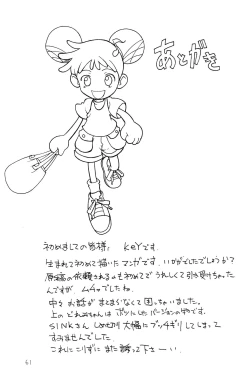 あとがき
初めましての皆様、KEYです。
生まれて初めて描いたマンガです。いかがでしたでしょうか?
原稿の依頼されるのも初めてで うれしくて引き受けちゃった
んですが ムチャでしたね。
中々お話がまとまらなくて困っちゃいました。
上のどれみちゃんは ボツにしたバージョンの物です。
SINKさん しめきり大幅にブッチギリしてしまって
すみませんでした
これにこりずにまた誘って下さーい。
61